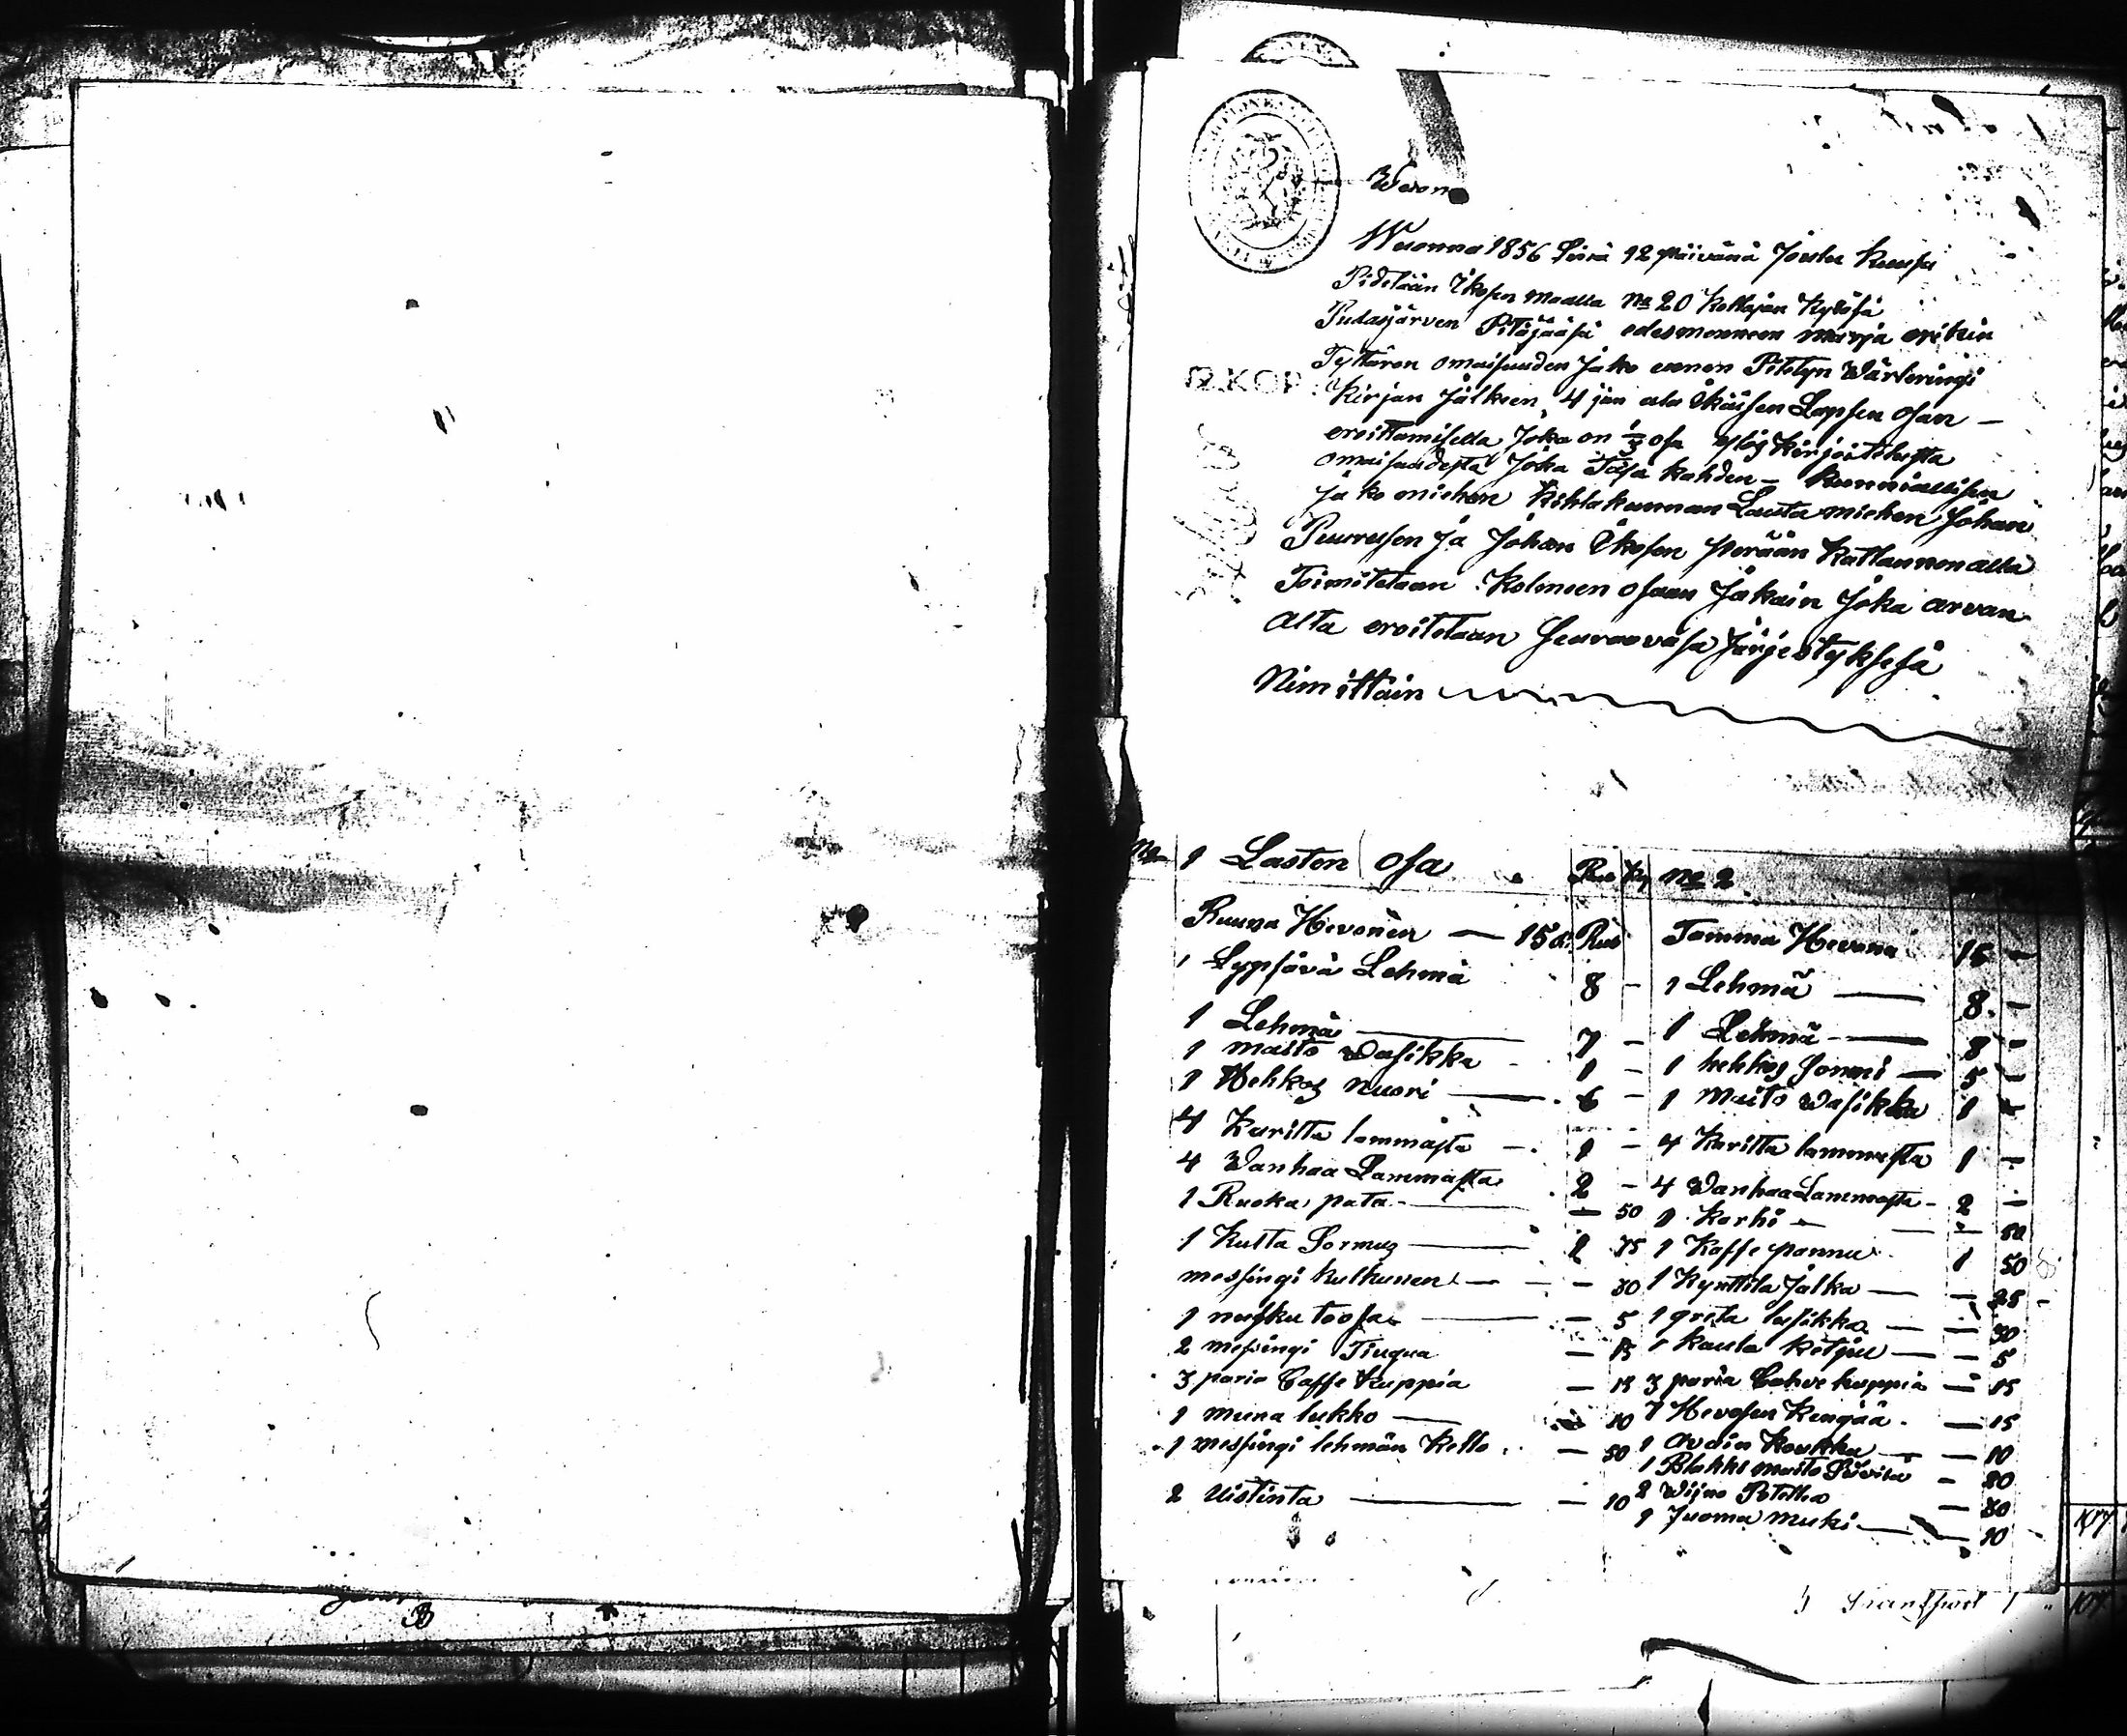 Wuonna 1856 Sinä 12 päivänä Joulu Kuusa
Pidetään Ikosen maalla No 20 Kollajan Kyläsä
Pudasjärven Pitäjääsä edesmenneen marja erikin
Tyttären omaisuuden Jako ennen Pitetyn Wärteringi
12.KOP.
Kirjan Jälkeen, 4 jän ala Ikäisen Lapsen osan –
eroittamisella Joka on 1/3 osa ylös Kirjoitetusta
omaisuudesta Joka Täsä kahden – kunniallisen
Jako miehen Kihlakunnan Lauta miehen Johan
Puurusen Ja Johan Ikosen perään Kattannon alla
Toimitetaan Kolmeen osaan Jakain Joka arvan
Alta eroitetaan Seuraavasa Järjestyksesä
Nimittäin
No 1 Lasten osa Rub Kp No 2
Ruuna Hevonen — 15 Rub Tamma Hevone 15 –
1 Lypsävä Lehmä 8 – 1 Lehmä — 8 –
1 Lehmä — 7 – 1 Lehmä — 8 –
1 maito Wasikka 1 – 1 hehkoz Sonni — 5 –
1 Hehkoz nuori — 6 – 1 Maito Wasikka 1 –
4 Karitta lammasta – 1 – 4 Karitta lammasta 1 –
4 Wanhaa Lammasta 2 – 4 Wanhaa Lammasta – 2 –
1 Ruoka pata — – 50 1 Karhi – — – 50
1 Kulta Sormuz — 1 75 1 Kaffe pannu 1 50
messingi kulkunen — – 30 1 Kynttila Jalka — – 25
1 nusku toosa — – 5 1 lusikka — – 30
2 mesingi Tiuqua – 15 1 Kaula — – 5
3 paria Caffe Kuppia – 15 3 paria Cahve kuppia – 15
1 muna lukko — – 10 7 Hevosen Kengää – 15
1 messingi lehmän Kello – 50 1 Avain Koukku – 10
1 Blakki maito – 20
2 Uistinta — – 10 2 Wijna Potellia – 30
1 Juoma muki — – 10